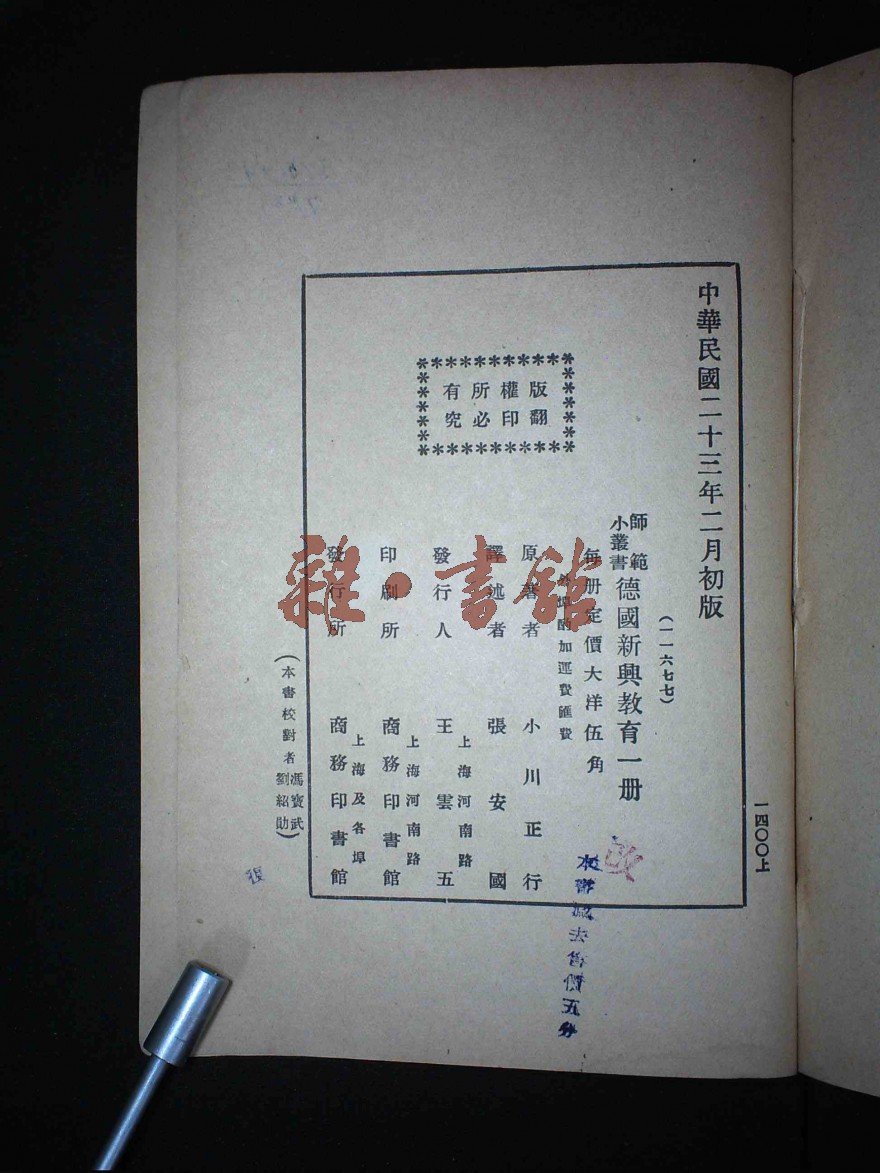 中華民國二十三年二月初版
(一一六七七)
師範小叢書 德國新興教育一册
每册定價大洋伍角
外埠酌加運費匯費
原著者 小川正行
譯述者 張安國
上海河南路
發行人 王雲五
上海河南路
印刷所 商務印書館
上海及各埠
發行所 商務印書館
版權所有
翻印必究
(本書校對者 馮寶武 劉紹勛)
一四〇〇上
去售價五分
雜·書館